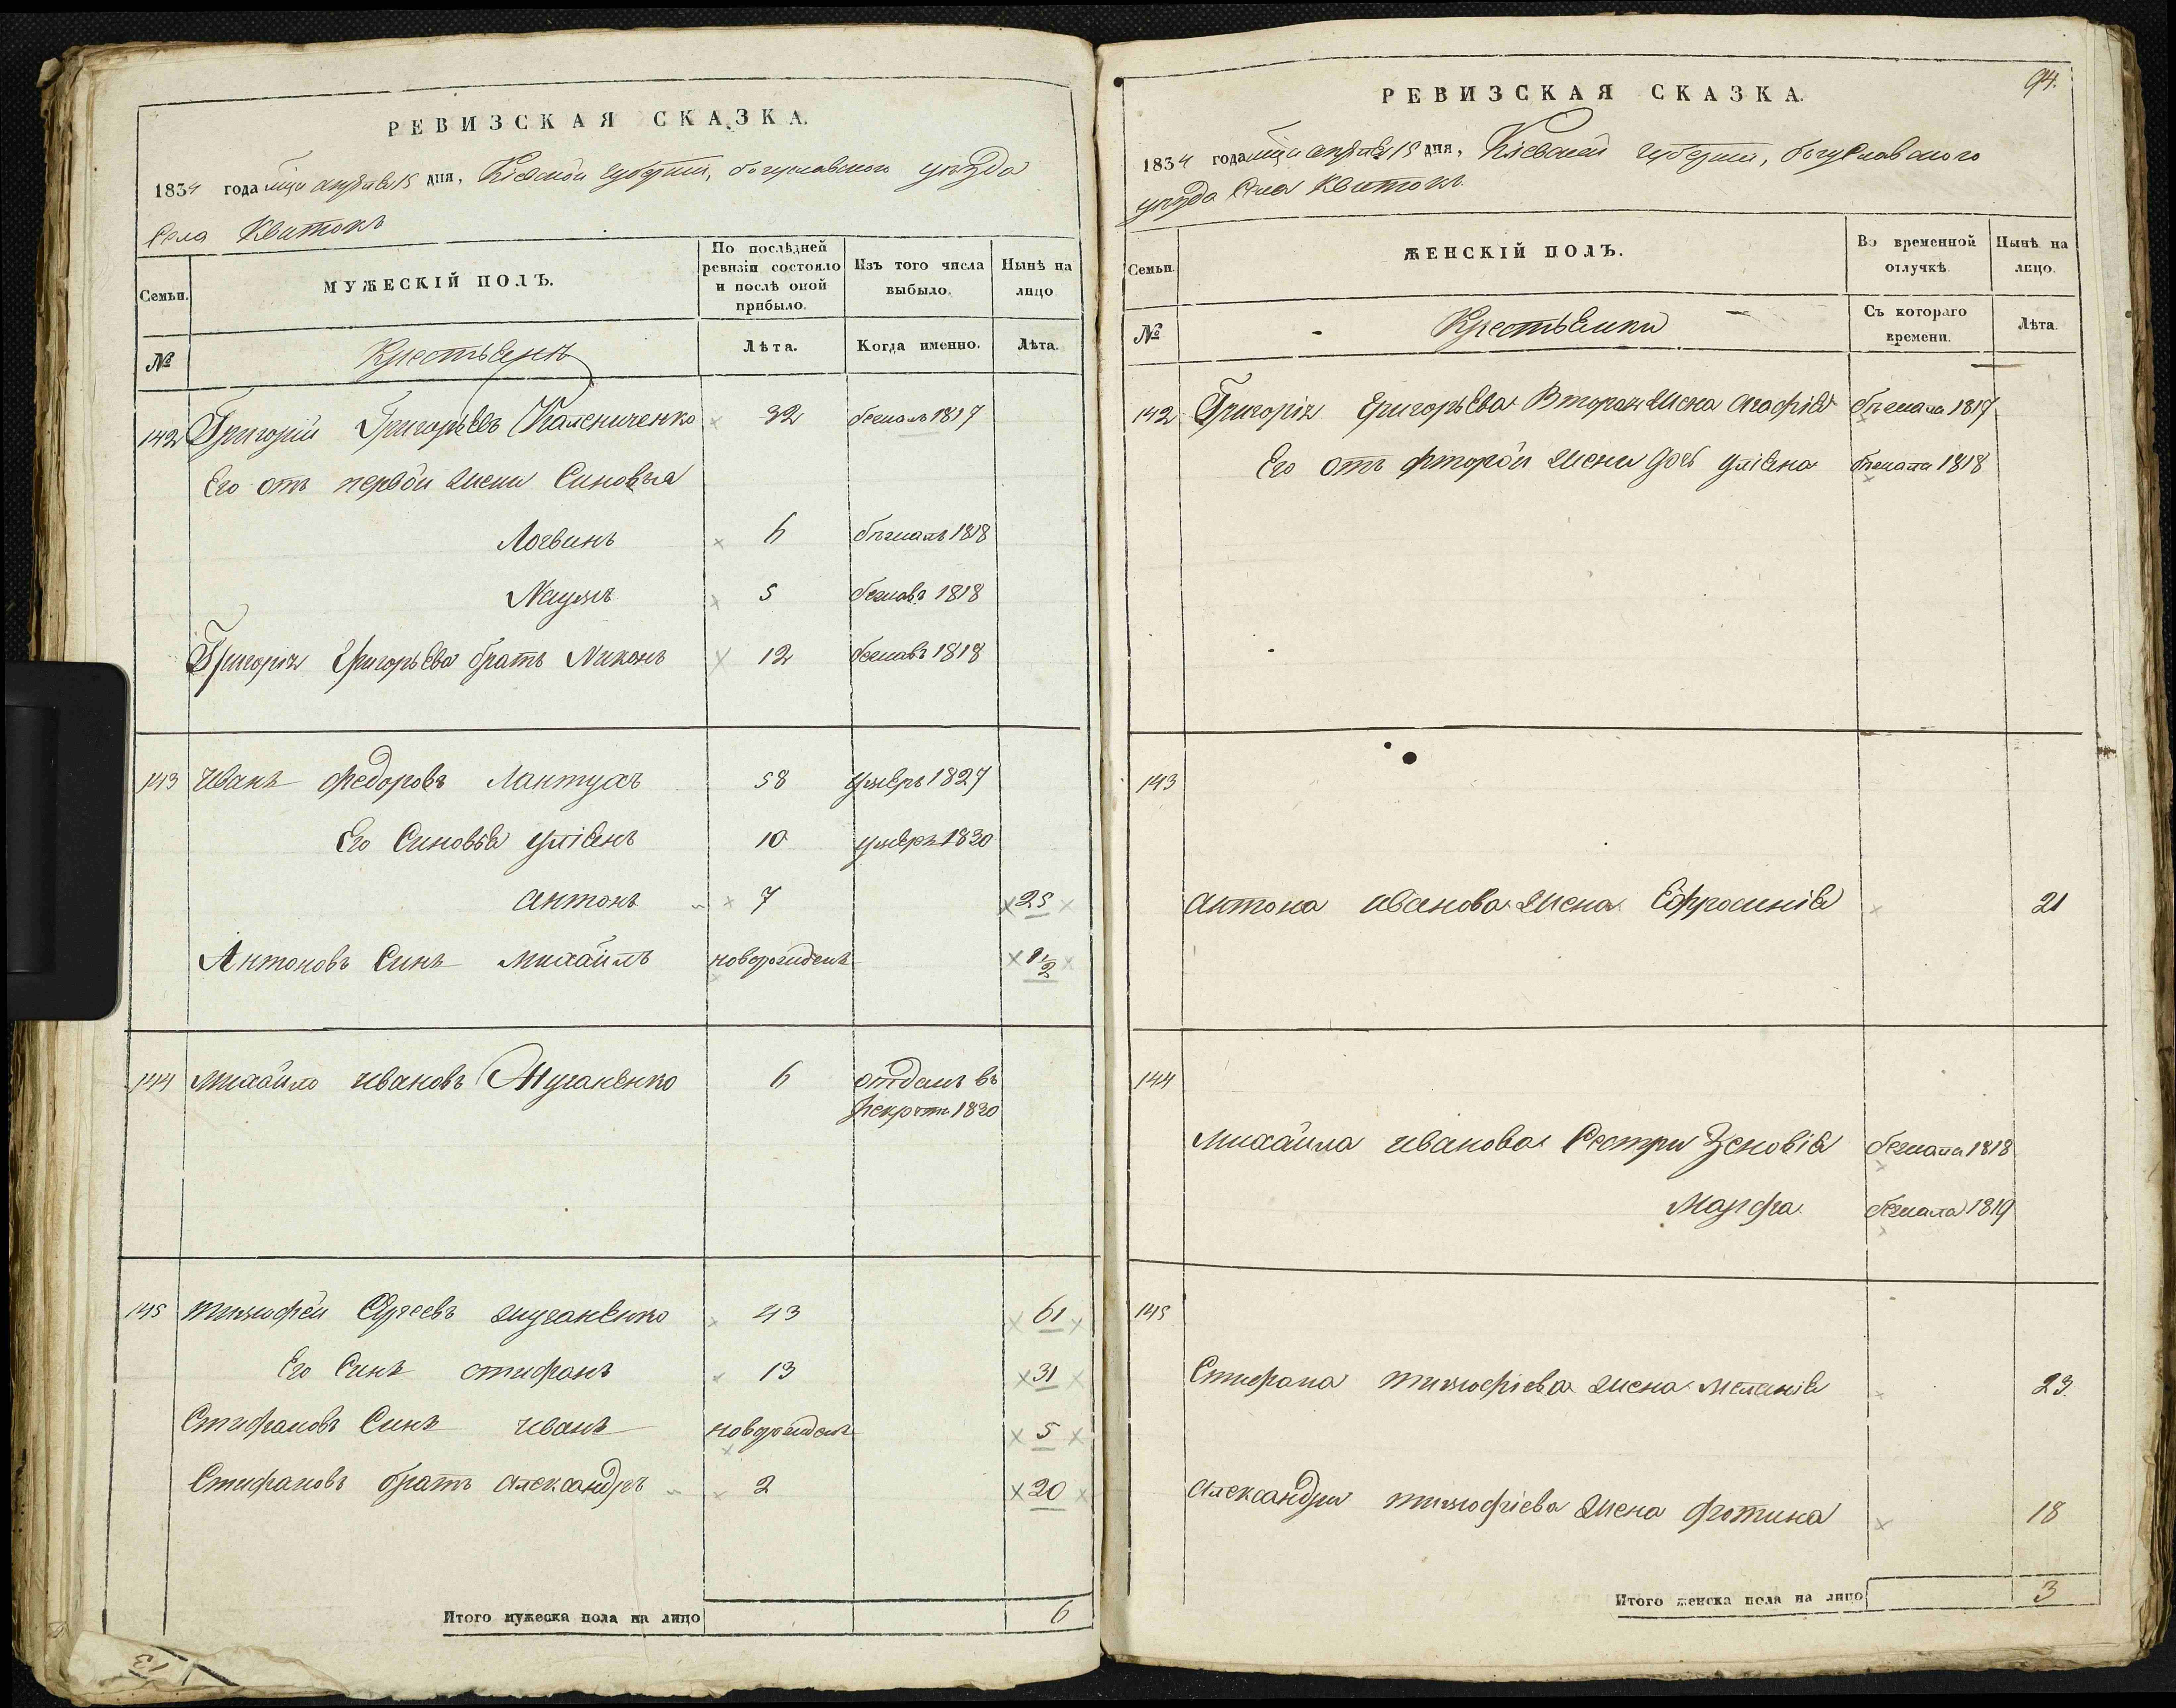 РЕВИЗСКАЯ СКАЗКА.
1834 года мца апреля 15 дня, Кіевской губерніи, богуславского уѣзда
Села Квитокъ
Семьи.
МУЖЕСКІЙ ПОЛЪ.
По послѣдней ревизіи состояло и послѣ оной прибыло.
Изъ того числа выбыло.
Нынѣ на лицо
№
Крестьянъ
Лѣта.
Когда именно.
Лѣта.
142 Григорій Григорьевъ Калениченко 32 бежалъ 1817
Его отъ первой жени Синовья
Логвинъ 6 бѣжалъ 1818
Наумъ 5 бежалъ 1818
Григорія Григорьева братъ Никонъ 12 бежалъ 1818
143 Иванъ Федоровъ Лантухъ 58 умеръ 1827
Его Синовья Уліянъ 10 умеръ 1830
Антонъ 7 25
Антоновъ Синъ Михайлъ новорожденъ 1/2
144 Михайло Ивановъ 6 отданъ въ
рекруты 1830
145 Тимофей Сергеевъ 43 61
Его Синъ Стифанъ 13 31
Стифановъ Синъ Иванъ новорожденъ 5
Стифановъ братъ Александръ 2 20
Итого мужеска пола на лицо 6
13
94.
РЕВИЗСКАЯ СКАЗКА.
1834 года мца апреля 15 дня, Кіевской губерніи, богуславского
уѣзда Села Квитокъ
Семьи.
ЖЕНСКІЙ ПОЛЪ.
Во временной отлучкѣ.
Нынѣ на лицо.
№
Крестьянки
Съ котораго времени.
Лѣта.
142 Григорія Григорьева Вторая жена Агафія бѣжала 1817
Его отъ фторой жени дочь Уліяна бѣжала 1818
143
Антона Иванова жена Ефросинія 21
144
Михайла Иванова Сестри Зеновія бежала 1818
Марфа бежала 1819
145
Стифана Тимофіева жена Меланія 23.
Александри Тимофіева жена Фотина 18
Итого женска пола на лицо 3